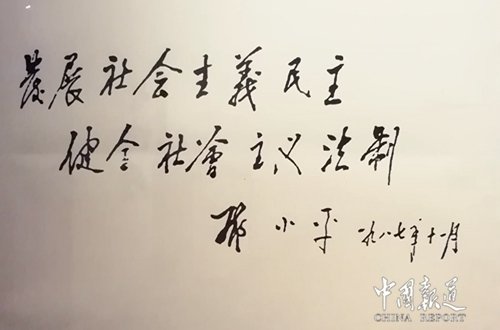 發展社会主義民主
健全社會主义法制
邓小平 一九八七年十一月
中国报道
CHINA REPORT